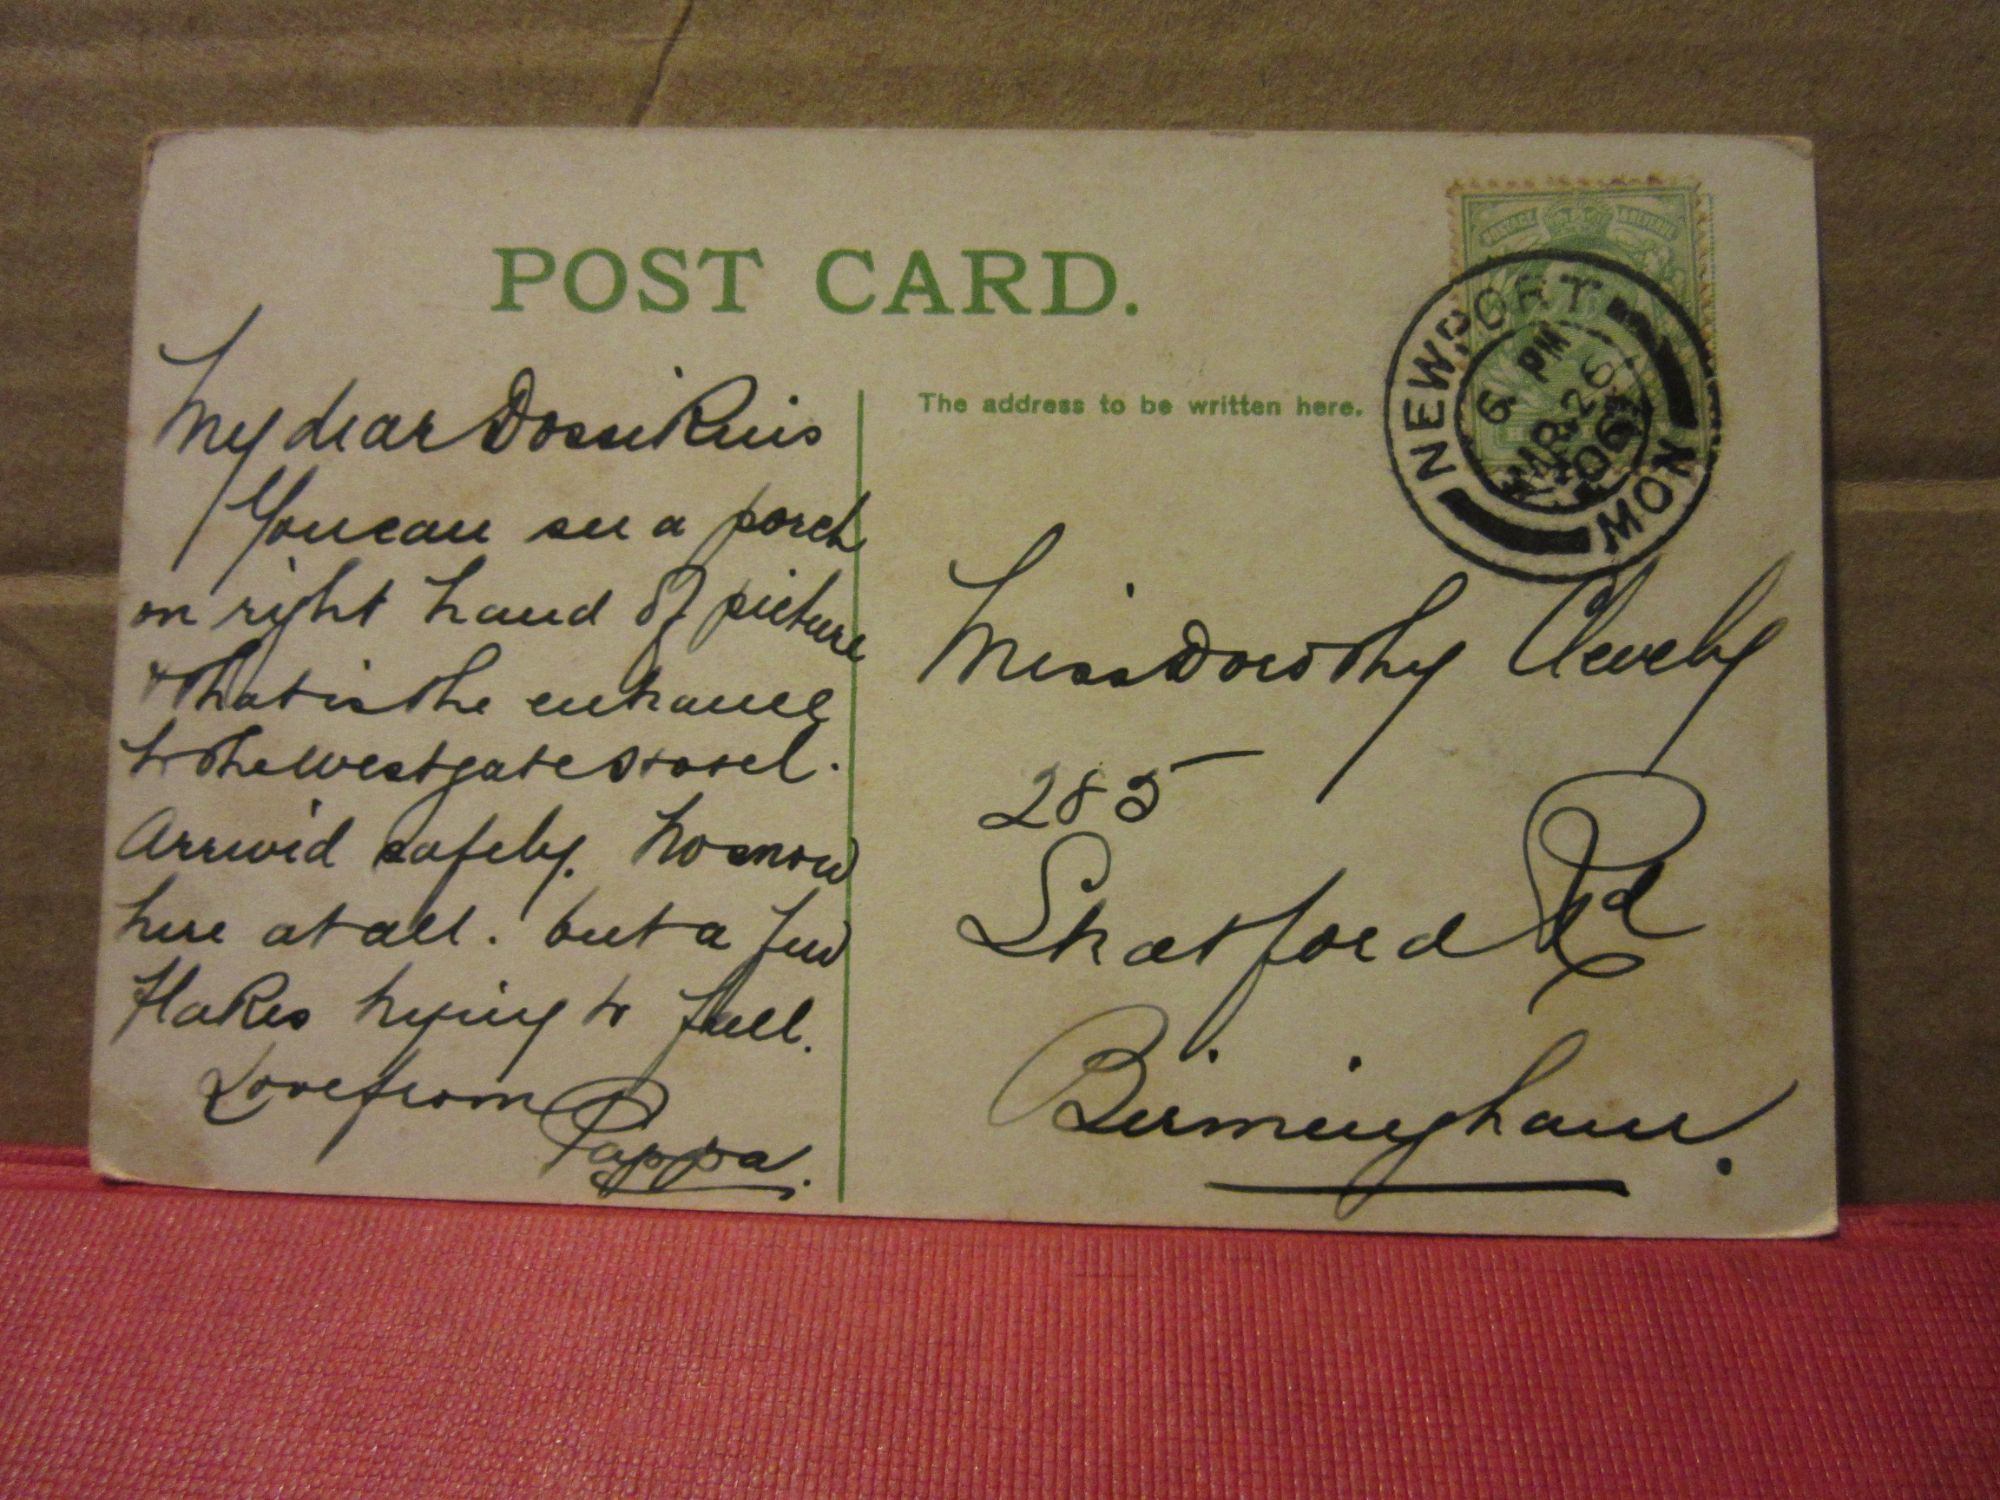 POST CARD.
The address to be written here.
NEWPORT MON
6 PM
MR 26
06
My dear Dossi
You can see a porch
on right hand of picture
& that is the entrance
to the Westgate Hotel.
Arrived safely. No snow
here at all. but a few
flakes trying to fall.
Love from
Pappa.
Miss Dorothy
285
Stratford Rd
Birmingham.